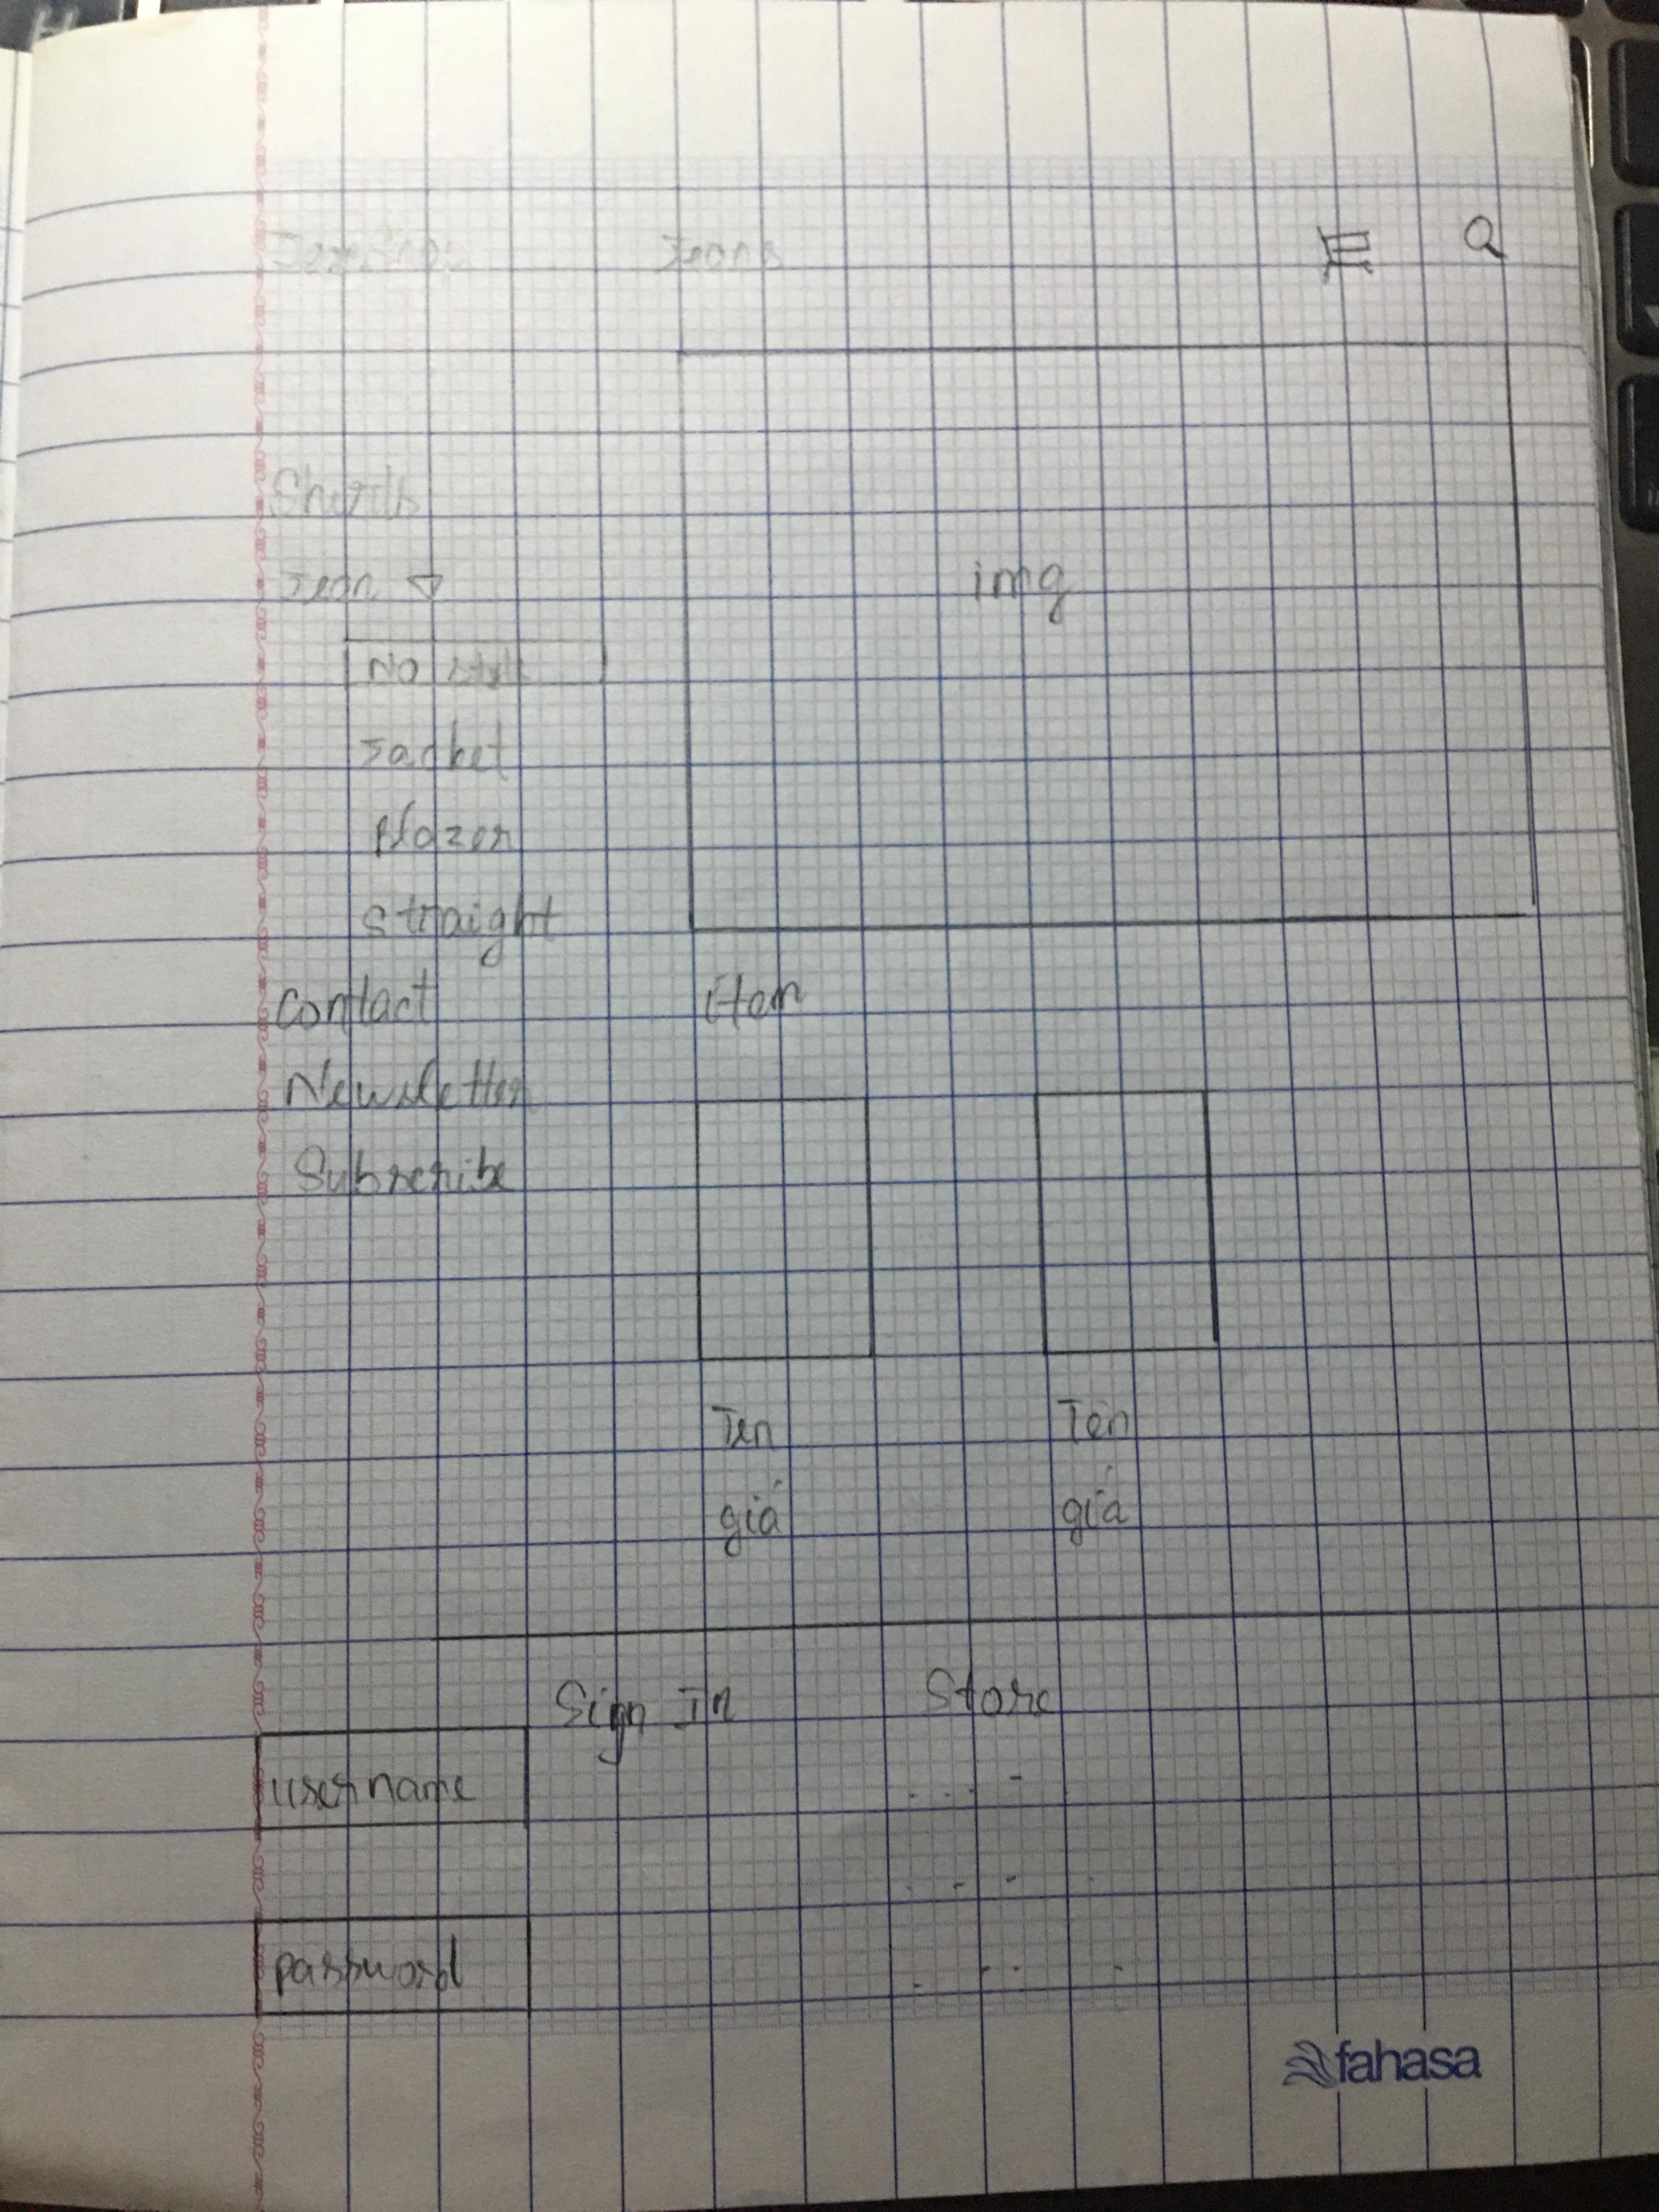 Jeans
Shirts
Jean
img
No style
Jacket
Blazer
Straight
Contact
item
Newsletter
Subscribe
Ten Tên
giá giá
Sign In Store
username
password
fahasa